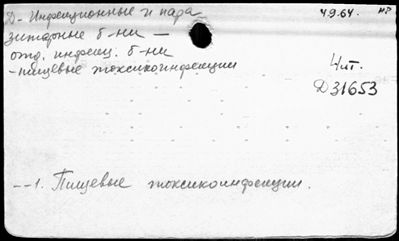 Д- Инфекционные и пара
зитарные б-ни —
отд. инфекц. б-ни
-пищевые токсикоинфекции
4.9.64.
Чит.
Д31653
--1. Пищевые токсикоинфекции.